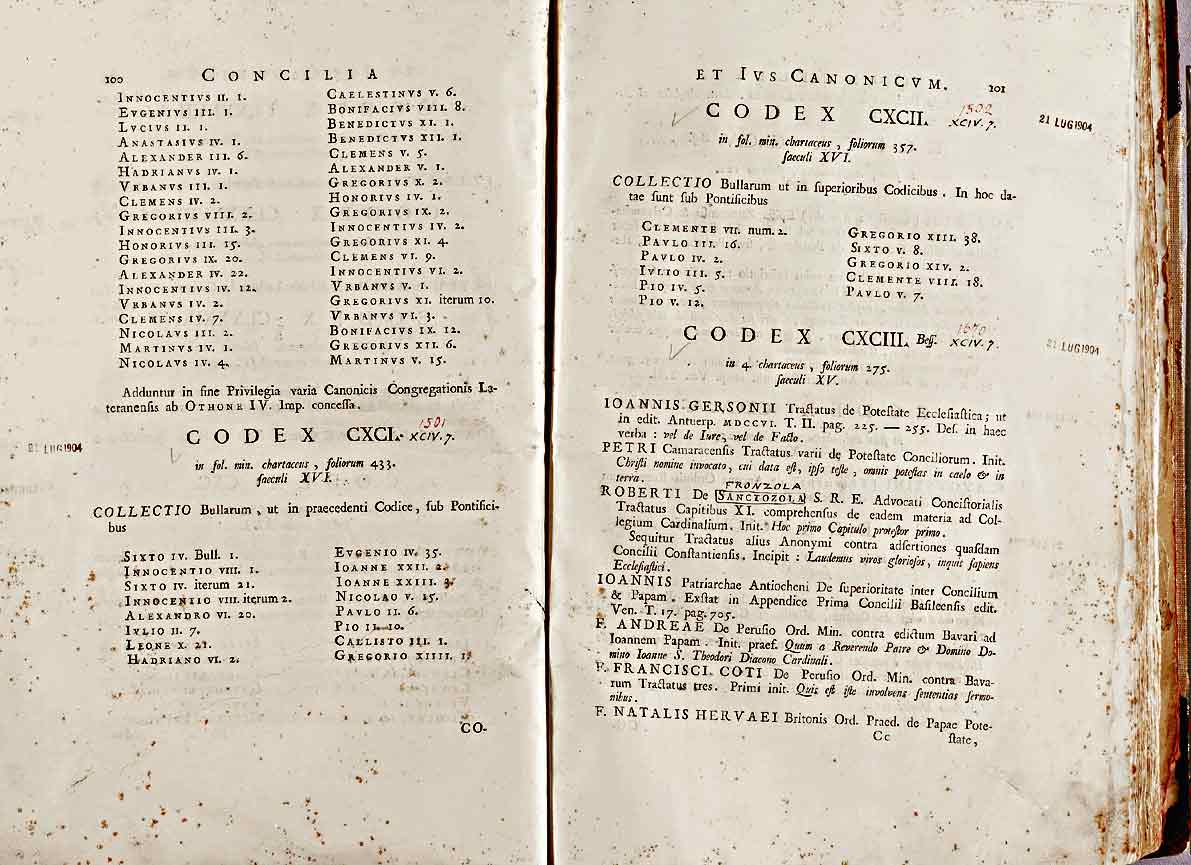 100 CONCILIA
INNOCENTIVS II. 1.
EVGENIVS III. 1.
LVCIVS II. 1.
ANASTASIVS IV. 1.
ALEXANDER III. 6.
HADRIANVS IV. 1.
VRBANVS III. 1.
CLEMENS IV. 2.
GREGORIVS VIII. 2.
INNOCENTIVS III. 3.
HONORIVS III. 15.
GREGORIVS IX. 20.
ALEXANDER IV. 22.
INNOCENTIVS IV. 12.
VRBANVS IV. 2.
CLEMENS IV. 7.
NICOLAVS III. 2.
MARTINVS IV. 1.
NICOLAVS IV. 4.
CAELESTINVS V. 6.
BONIFACIVS VIII. 8.
BENEDICTVS XI. 1.
BENEDICTVS XII. 1.
CLEMENS V. 5.
ALEXANDER V. 1.
GREGORIVS X. 2.
HONORIVS IV. 1.
GREGORIVS IX. 2.
INNOCENTIVS IV. 2.
GREGORIVS XI. 4.
CLEMENS VI. 9.
INNOCENTIVS VI. 2.
VRBANVS V. 1.
GREGORIVS XI. iterum 10.
VRBANVS VI. 3.
BONIFACIVS IX. 12.
GREGORIVS XII. 6.
MARTINVS V. 15.
Adduntur in fine Privilegia varia Canonicis Congregationis La-
teranensis ab OTHONE IV. Imp. concessa.
1501
CODEX CXCI. XCIV. 7.
21 LUG 1904
in fol. min. chartaceus, foliorum 433.
saeculi XVI.
COLLECTIO Bullarum, ut in praecedenti Codice, sub Pontifici-
bus
SIXTO IV. Bull. 1.
INNOCENTIO VIII. 1.
SIXTO IV. iterum 21.
INNOCENTIO VIII. iterum 2.
ALEXANDRO VI. 20.
IVLIO II. 7.
LEONE X. 21.
HADRIANO VI. 2.
EVGENIO IV. 35.
IOANNE XXII. 2.
IOANNE XXIII. 3.
NICOLAO V. 15.
PAVLO II. 6.
PIO II. 10.
CALLISTO III. 1.
GREGORIO XIIII. 1.
CO-
ET IVS CANONICVM. 101
1502
CODEX CXCII. XCIV. 7.
21 LUG 1904
in fol. min. chartaceus, foliorum 357.
saeculi XVI.
COLLECTIO Bullarum ut in superioribus Codicibus. In hoc da-
tae sunt sub Pontificibus
CLEMENTE VII. num. 2.
PAVLO III. 16.
PAVLO IV. 2.
IVLIO III. 5.
PIO IV. 5.
PIO V. 12.
GREGORIO XIII. 38.
SIXTO V. 8.
GREGORIO XIV. 2.
CLEMENTE VIII. 18.
PAVLO V. 7.
CODEX CXCIII. Bess. XCIV. 7.
21 LUG 1904
in 4. chartaceus, foliorum 275.
saeculi XV.
IOANNIS GERSONII Tractatus de Potestate Ecclesiastica; ut
in edit. Antuerp. MDCCVI. T. II. pag. 225. — 255. Des. in haec
verba: vel de Iure, vel de Facto.
PETRI Camaracensis Tractatus varii de Potestate Conciliorum. Init.
Christi nomine invocato, cui data est, ipso teste, omnis potestas in caelo & in
terra.
FRONZOLA
ROBERTI De SANCTOZOLA S. R. E. Advocati Concistorialis
Tractatus Capitibus XI. comprehensus de eadem materia ad Col-
legium Cardinalium. Init. Hoc primo Capitulo protestor primo.
Sequitur Tractatus alius Anonymi contra adsertiones quasdam
Concilii Constantiensis. Incipit: Laudemus viros gloriosos, inquit sapiens
Ecclesiastici.
IOANNIS Patriarchae Antiocheni De superioritate inter Concilium
& Papam. Exstat in Appendice Prima Concilii Basileensis edit.
Ven. T. 17. pag. 705.
F. ANDREAE De Perusio Ord. Min. contra edictum Bavari ad
Ioannem Papam. Init. praef. Quum a Reverendo Patre & Domino Do-
mino Ioanne S. Theodori Diacono Cardinali.
F. FRANCISCI COTI De Perusio Ord. Min. contra Bava-
rum Tractatus tres. Primi init. Quis est iste involvens sententias sermo-
nibus.
F. NATALIS HERVAEI Britonis Ord. Praed. de Papae Pote-
Cc state,